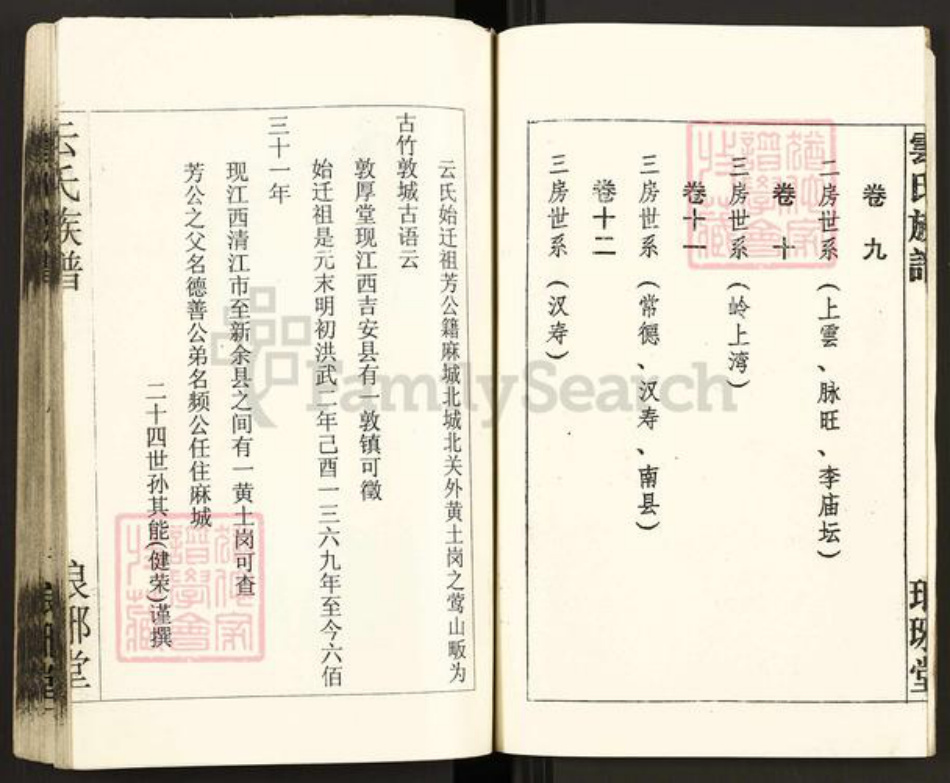 雲氏族譜
卷九
二房世系（上雲、脉旺、李庙坛）
卷十
三房世系（岭上湾）
卷十一
三房世系（常德、汉寿、南县）
卷十二
三房世系（汉寿）
云氏始迁祖芳公籍麻城北城北关外黄土岗之莺山畈为
古竹敦城古语云
敦厚堂现江西吉安县有一敦镇可徵
始迁祖是元末明初洪武二年己酉一三六九年至今六佰
三十一年
现江西清江市至新余县之间有一黄土岗可查
芳公之父名德善公弟名频公任住麻城
二十四世孙其能(健荣)谨撰
云氏族谱
FamilySearch